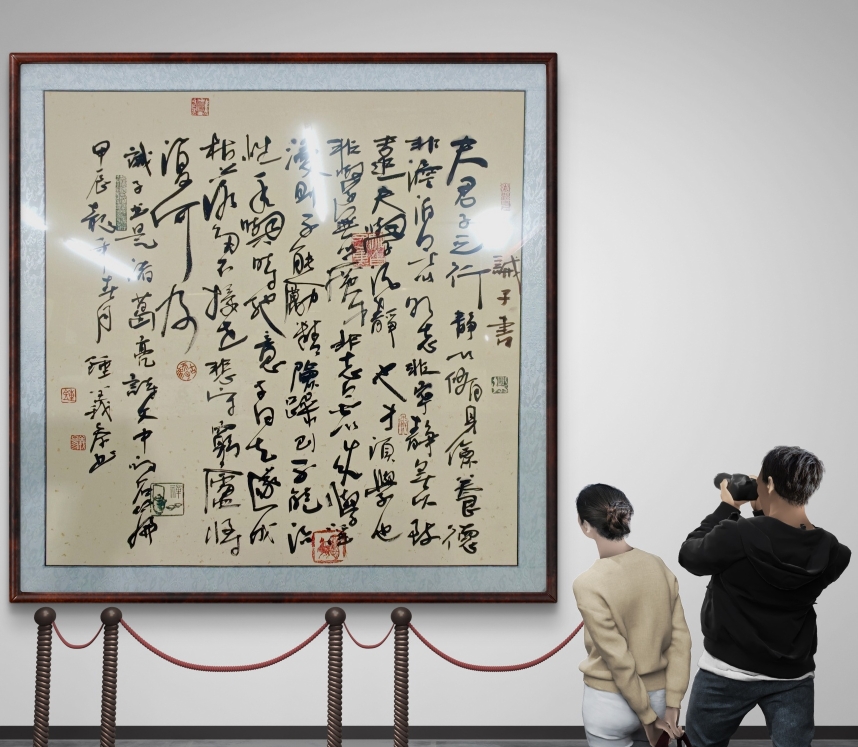 誡子書
夫君子之行靜以修身儉養德
非澹泊無以明志非寧靜無以致
遠夫學須靜也才須學也
非學無以廣才非志無以成學淫
漫則不能勵精險躁則不能治
性年與時馳意與日去遂成
枯落多不接世悲守窮廬將
復何及
誡子書是諸葛亮文中的
甲辰龍年春月鍾義